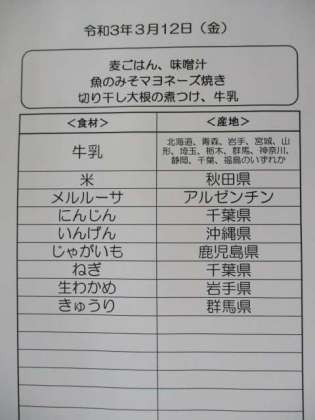 令和3年3月12日（金）
麦ごはん、味噌汁
魚のみそマヨネーズ焼き
切り干し大根の煮つけ、牛乳
＜食材＞ ＜産地＞
牛乳 北海道、青森、岩手、宮城、山
形、埼玉、栃木、群馬、神奈川、
静岡、千葉、福島のいずれか
米 秋田県
メルルーサ アルゼンチン
にんじん 千葉県
いんげん 沖縄県
じゃがいも 鹿児島県
ねぎ 千葉県
生わかめ 岩手県
きゅうり 群馬県